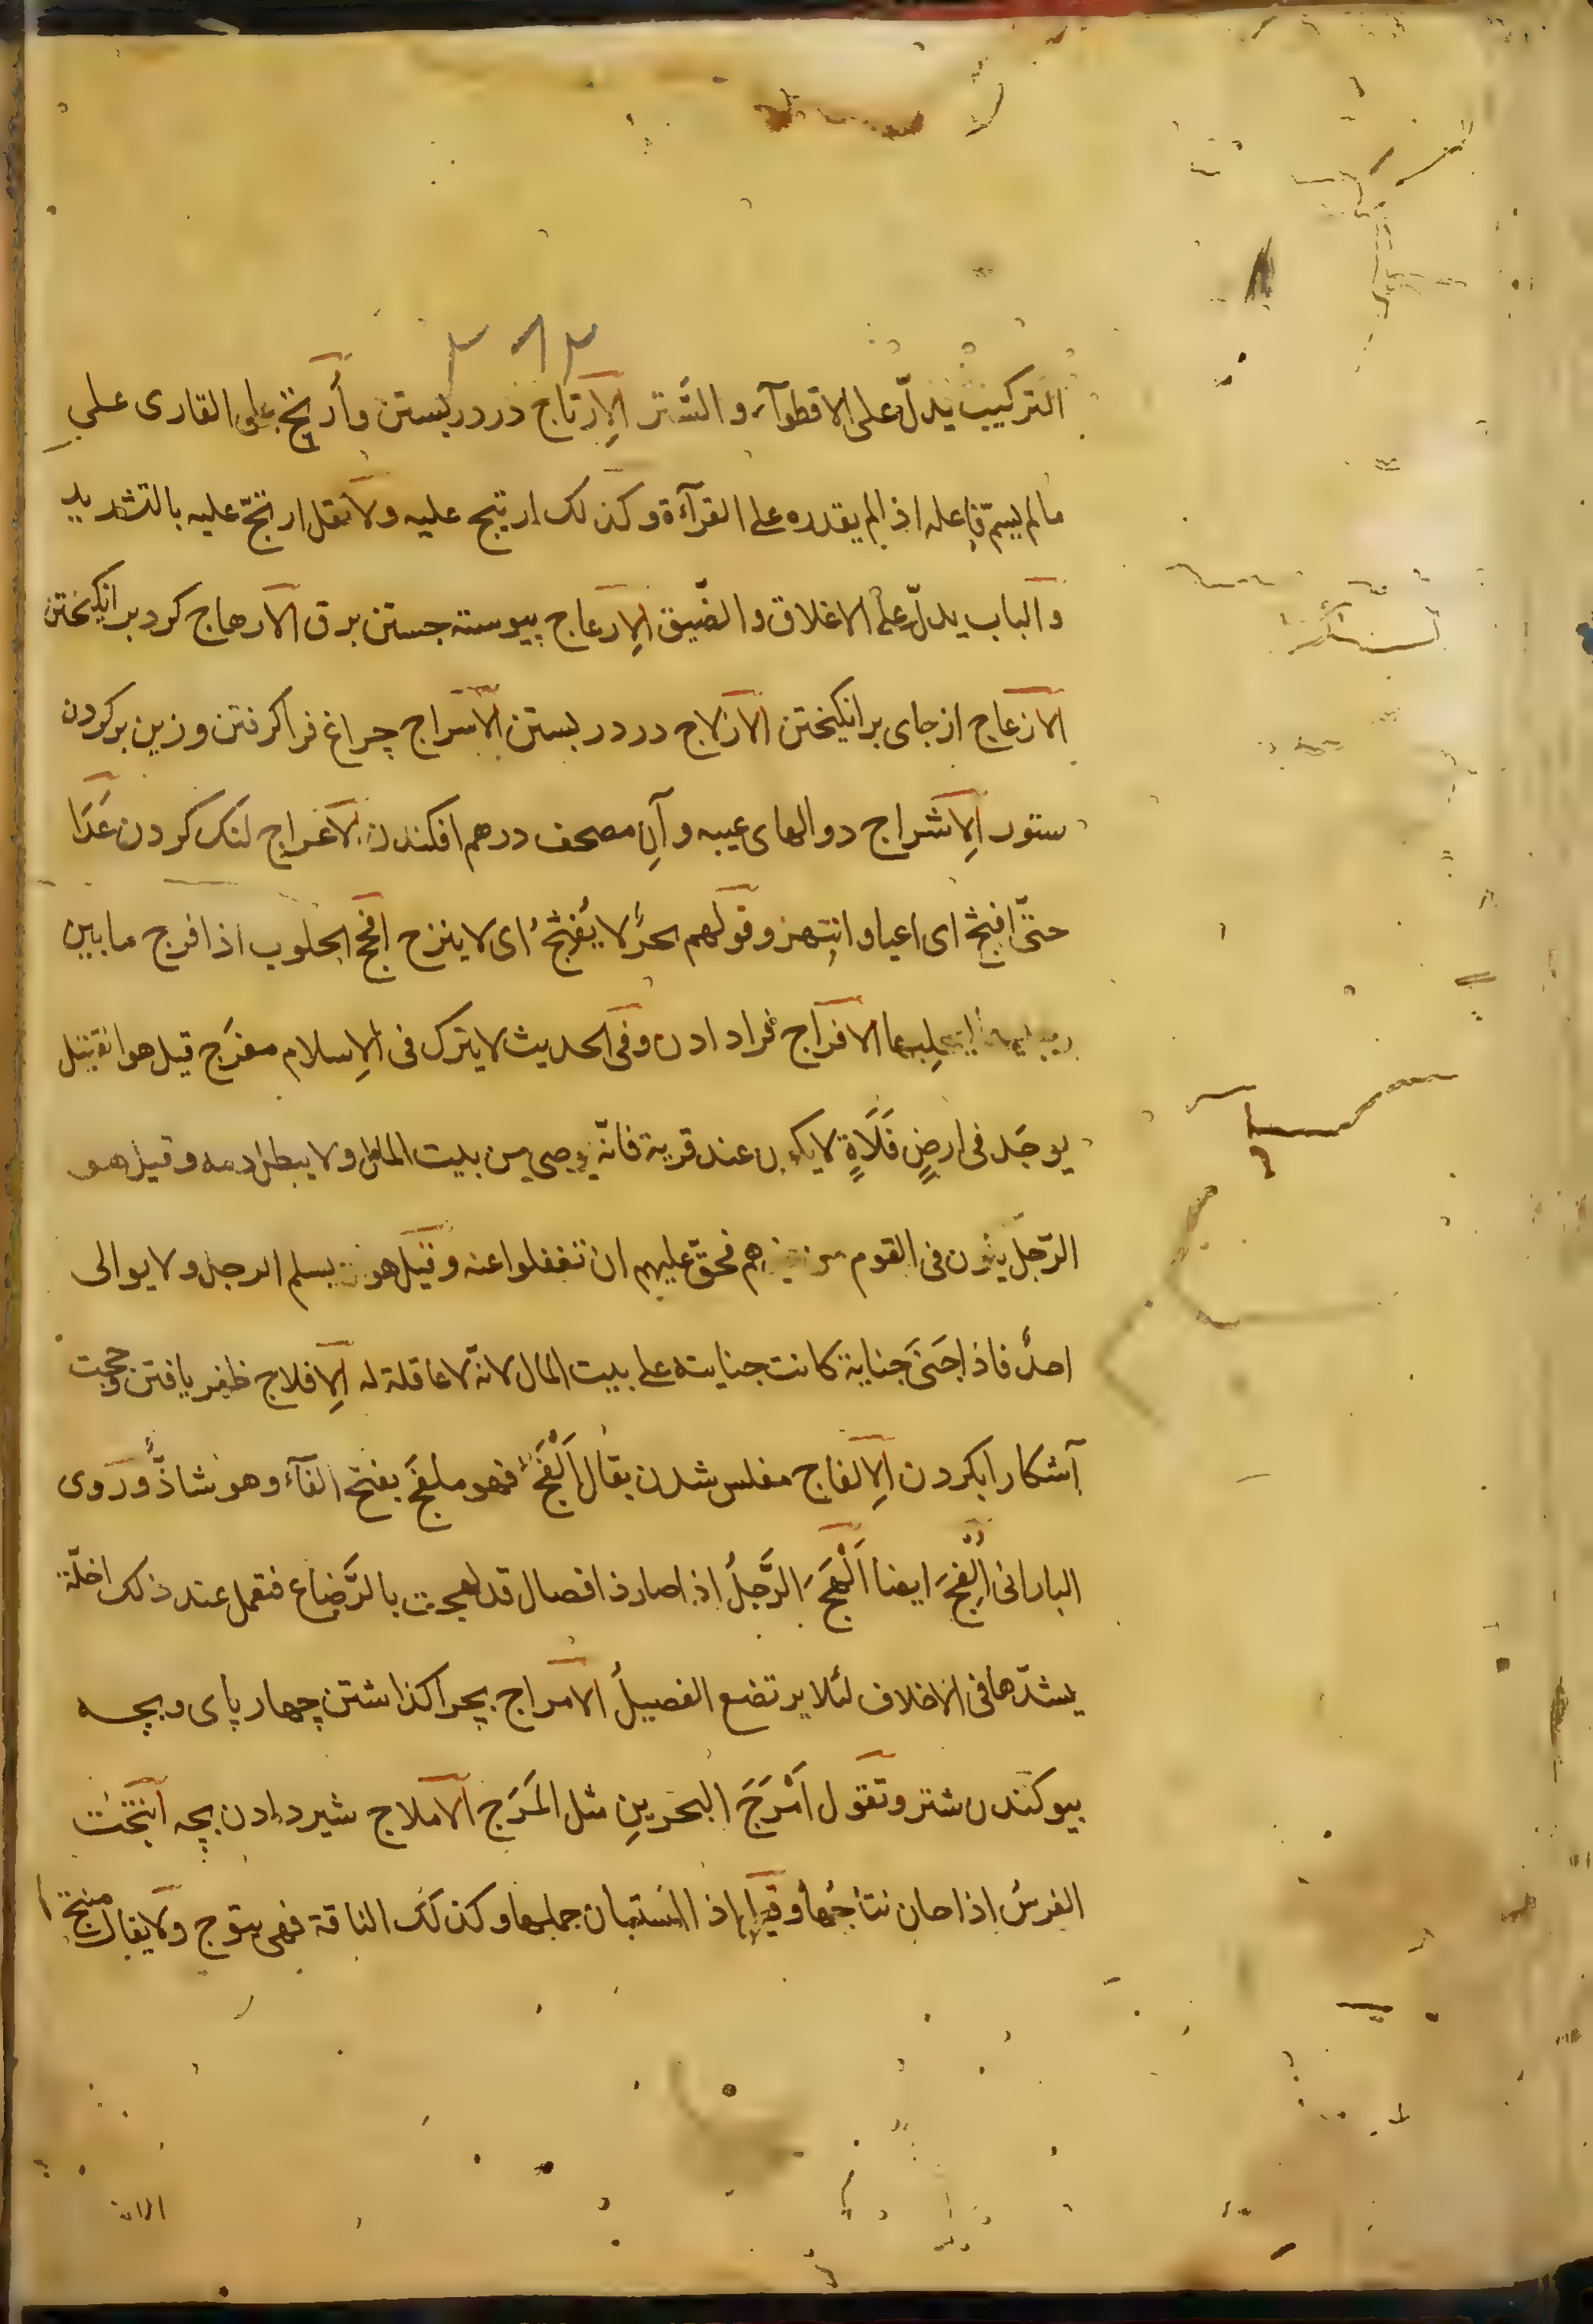 ۳۹۳
التركيب يدلّ على الاقطوآء والسَّتر الاِرتاج در دربستن واُرتِج على القارى على
مالم يسمّ فاعله اذا لم يقدره على القرآءة وكذلك ارتتج عليه ولا تقل ارتجّ عليه بالتشديد
والباب يدلّ على الاغلاق والضّيق الاِرعاج پيوسته جستن برق الارهاج كرد برانكيختن
الازعاج از جاى برانكيختن الازلاج در در بستن الاسراج چراغ فراكرفتن و زين بركردن
ستور الاِشراج دوالهاى عيبه وآنِ مصحف درهم افكندن الاعراج لنك كردن عَدَا
حتّى افثج اى اعيا وانبهر وقولهم بحرٌ لا يُفثَجُ اى لا ينزح افجّ الحلوب اذا فرج ما بين
رجليها ليحلبها الافراج فرا دادن وفى الحديث لا يترك فى الاِسلام مفرَج قيل هو القتيل
يوجَد فى ارضٍ فَلَاةٍ لا يكون عند قرية فانّه يودى من بيت المال ولا يبطل دمه وقيل هو
الرّجل يكون فى القوم من غيرهم فحقّ عليهم ان تعقلوا عنه وقيل هو يسلم الرجل ولا يوالى
احدٌ فاذا جَنَى جناية كانت جنايته على بيت المال لانّه لا عاقلة له الاِفلاج ظفر يافتن وحجت
آشكارا بكردن الاِلفاج مفلس شدن يقال اَلْفَجَ فهو ملفَج بفتح الفآء وهو شاذٌّ وروى
البارانى اُلْفِجَ ايضا اَلْهَجَ الرَّجلُ اذا صار ذا فصال قد لهجت بالرَّضاع فتعمل عند ذلك اخلّة
يشدّها فى الاخلاف لئلا يرتضع الفصيلُ الامراج بچرا كذاشتن چهارپاى وبچه
بيوكندن شتر وتقول اَمْرَجَ البحرينِ مثل المَرَج الاملاج شير دادن بچه اَنتجَت
الفرسُ اذا حان نتاجُها وقيل اذا استبان حملها وكذلك الناقة فهى نتوج ولا يقال منتج